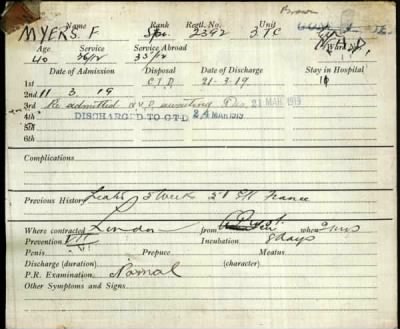 Name Rank Regtl. No. Unit
MYERS. F Spr. 2392 3TC
Age Service Service Abroad Ward
40 36/12 33/12
Date of Admission Disposal Date of Discharge Stay in Hospital
1st C.T.D. 21-3.19
2nd 11 3. 19
3rd Re admitted awaiting 21 MAR 1919
4th DISCHARGED TO C.T.D. 24 MAR 1919
5th
6th
Complications
Previous History 5 Weeks 51 GH France
Where contracted London from when
Prevention Incubation 8 days
Penis Prepuce Meatus
Discharge (duration) (character)
P.R. Examination. Normal
Other Symptoms and Signs